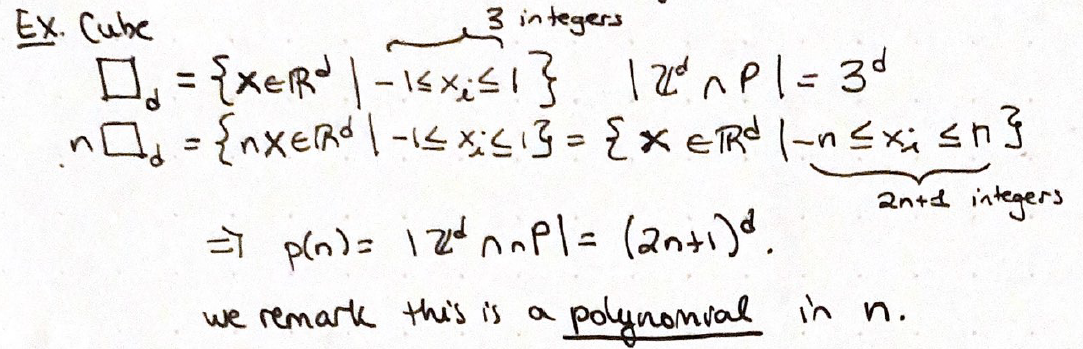 Ex. Cube
3 integers
□_d = {x∈ℝ^d | -1≤x_i≤1} |ℤ^d ∩ P| = 3^d
n□_d = {nx∈ℝ^d | -1≤x_i≤1} = {x∈ℝ^d | -n≤x_i≤n}
2n+1 integers
⇒ p(n) = |ℤ^d ∩ nP| = (2n+1)^d.
we remark this is a polynomial in n.